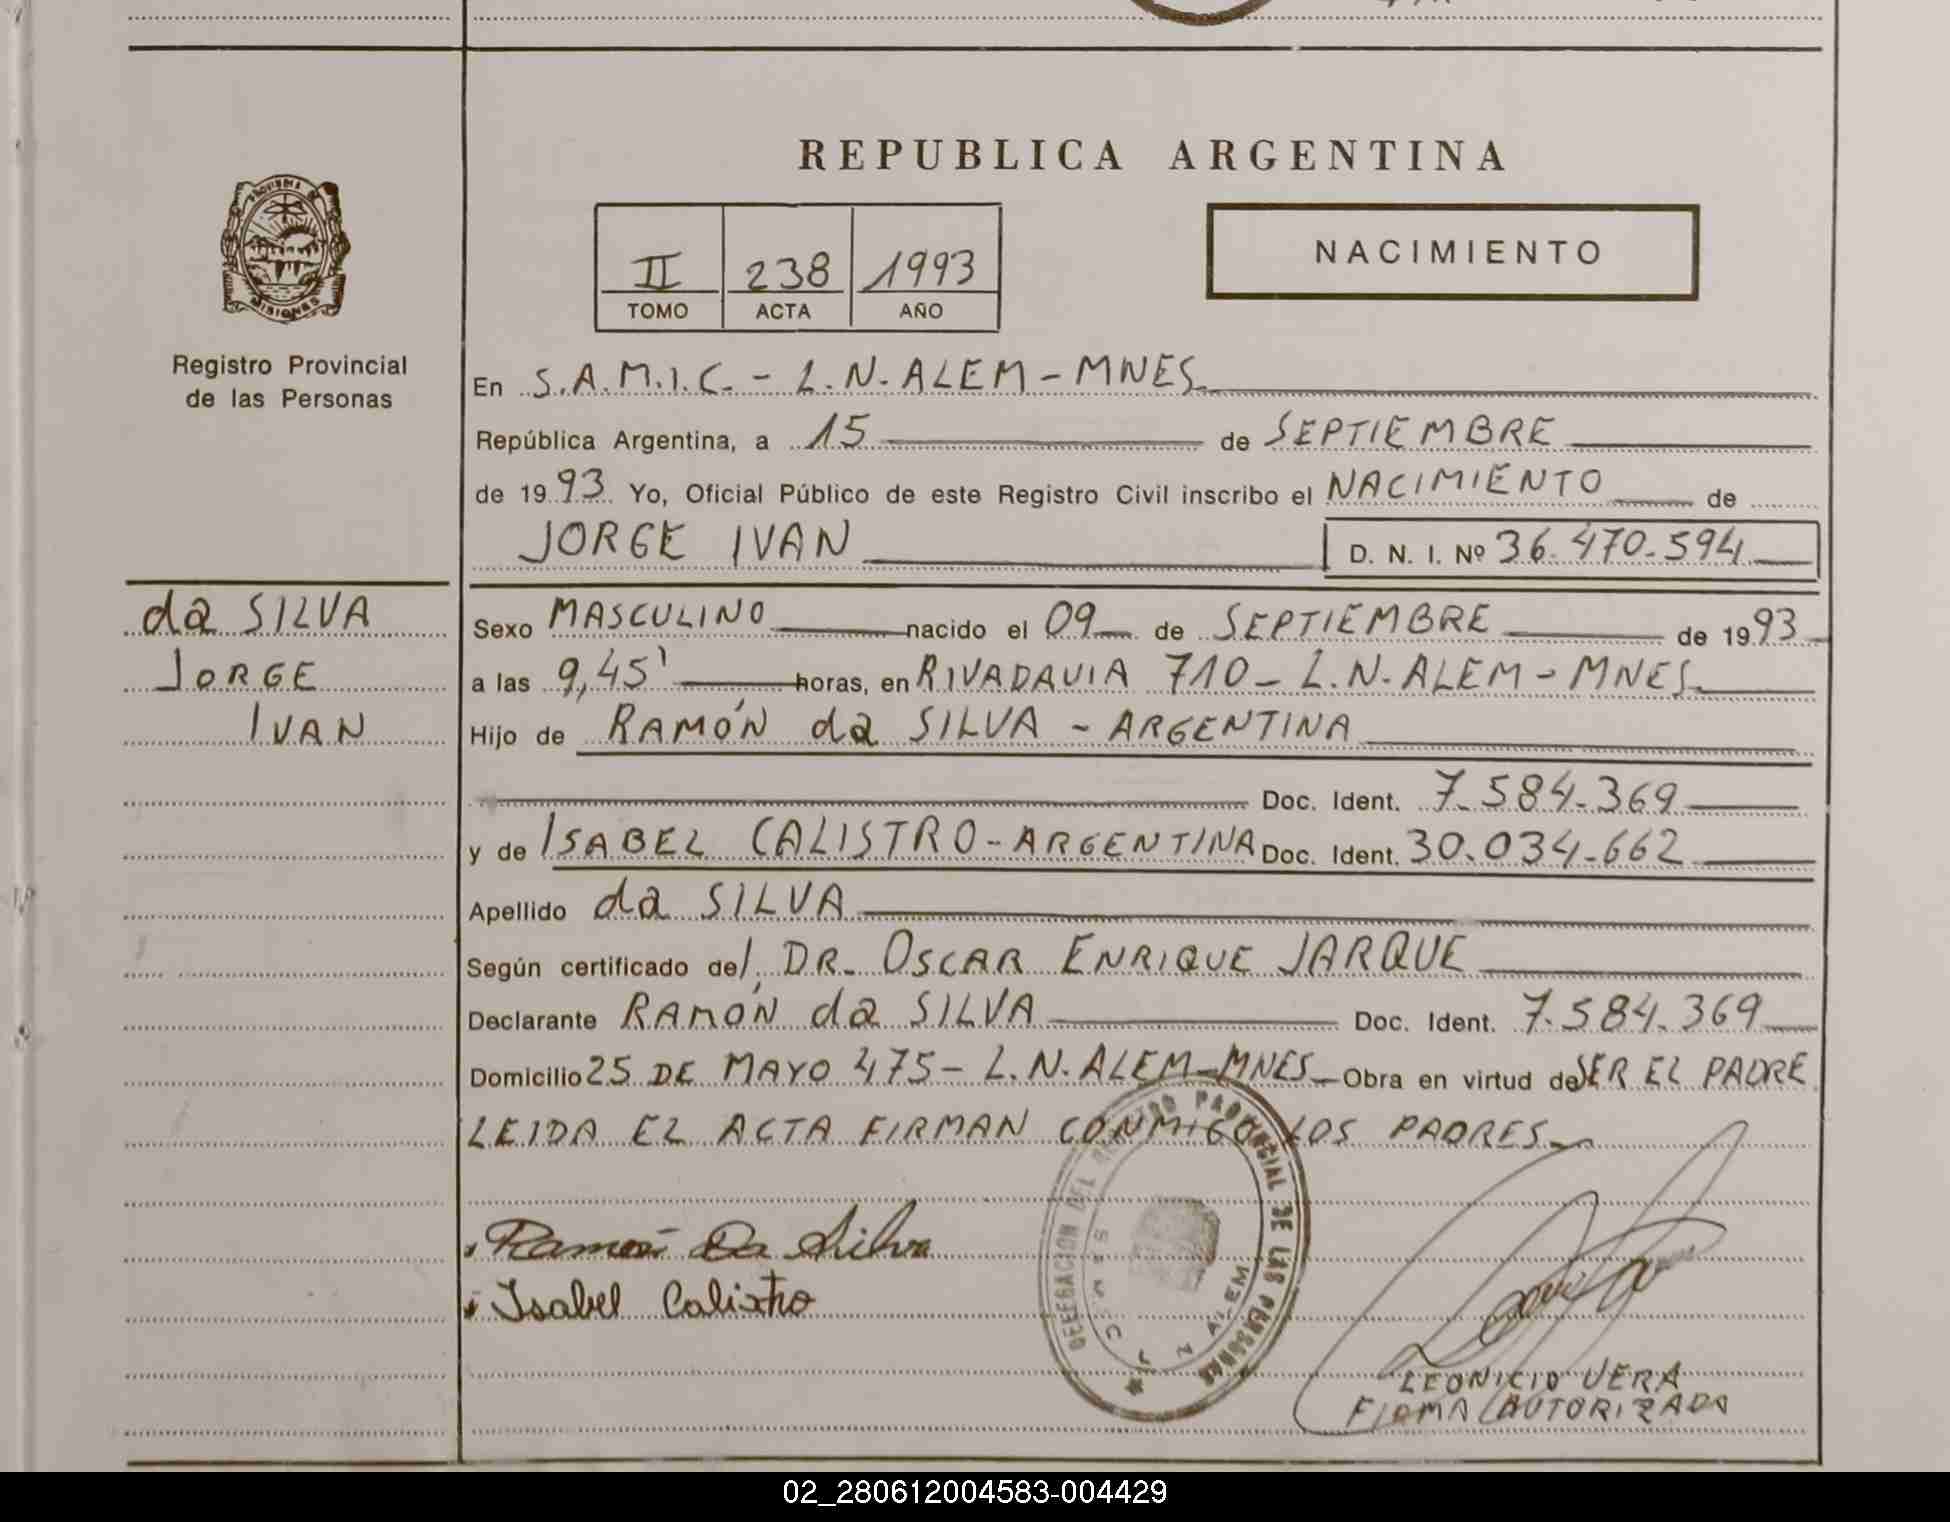 REPUBLICA ARGENTINA
PROVINCIA DE MISIONES
II 238 1993
TOMO ACTA AÑO
NACIMIENTO
Registro Provincial
de las Personas
En S.A.M.I.C. - L.N. ALEM - MNES
República Argentina, a 15 de SEPTIEMBRE
de 1993 Yo, Oficial Público de este Registro Civil inscribo el NACIMIENTO de
JORGE IVAN D. N. I. Nº 36.470.594
da SILVA
JORGE
IVAN
Sexo MASCULINO nacido el 09 de SEPTIEMBRE de 1993
a las 9,45' horas, en RIVADAVIA 710 - L.N. ALEM - MNES
Hijo de RAMÓN da SILVA - ARGENTINA
Doc. Ident. 7.584.369
y de ISABEL CALISTRO - ARGENTINA Doc. Ident. 30.034.662
Apellido da SILVA
Según certificado del, DR. OSCAR ENRIQUE JARQUE
Declarante RAMÓN da SILVA Doc. Ident. 7.584.369
Domicilio 25 DE MAYO 475 - L.N. ALEM - MNES - Obra en virtud de SER EL PADRE
LEIDA EL ACTA FIRMAN CONMIGO LOS PADRES
Ramón Da Silva
Isabel Calixtro
DELEGACION DEL REGISTRO PROVINCIAL DE LAS PERSONAS
ALEM
LEONICIO VERA
FIRMA AUTORIZADA
02_280612004583-004429